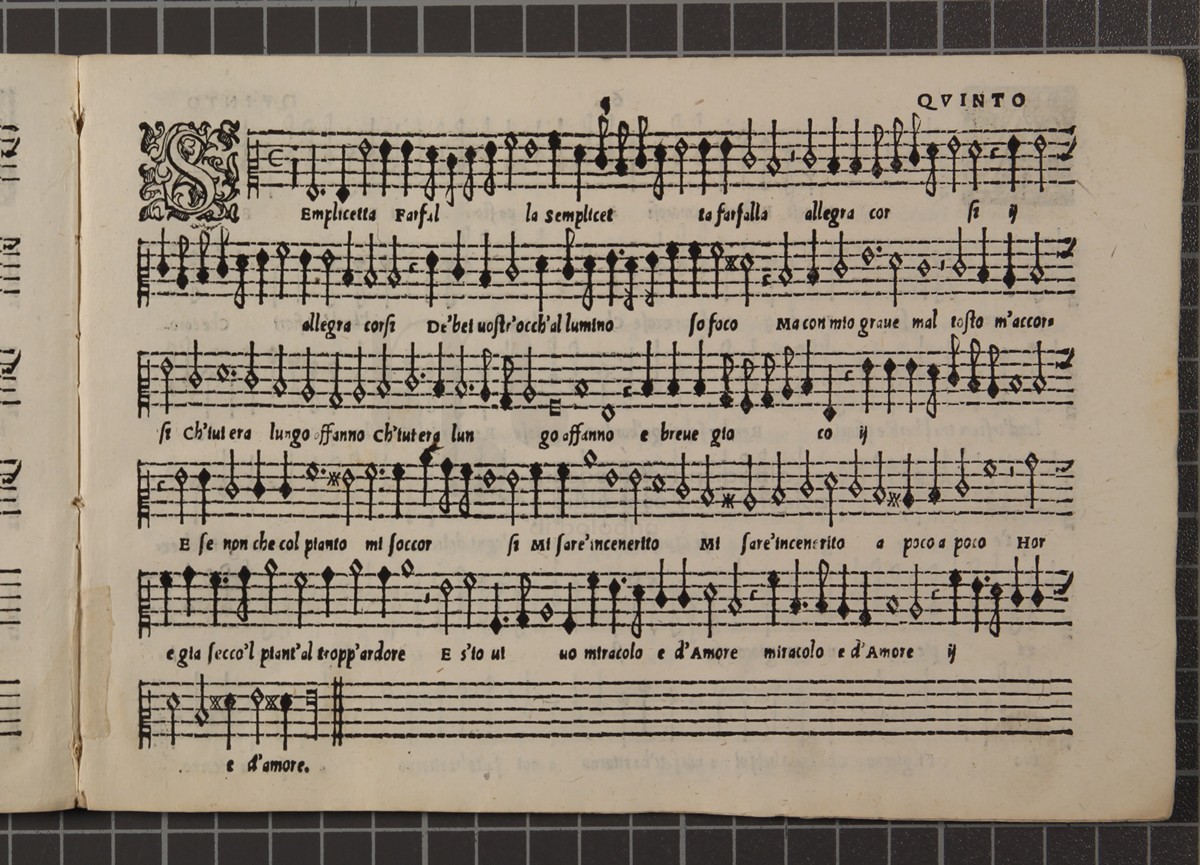 5 QVINTO
SEmplicetta Farfal la Semplicet ta farfalla allegra cor ſi ij
allegra corſi De'bei uoſtr'occh'al lumino ſo foco Ma con mio graue mal toſto m'accorſ
ſi Ch'iui era lungo affanno Ch'iui era lun go affanno e breue gio co ij
E ſe non che col pianto mi ſoccor ſi Mi ſare'incenerito Mi ſare'incenerito a poco a poco Hor
e gia ſecco'l piant'al tropp'ardore E s'io ui uo miracolo e d'Amore miracolo e d'Amore ij
e d'amore.